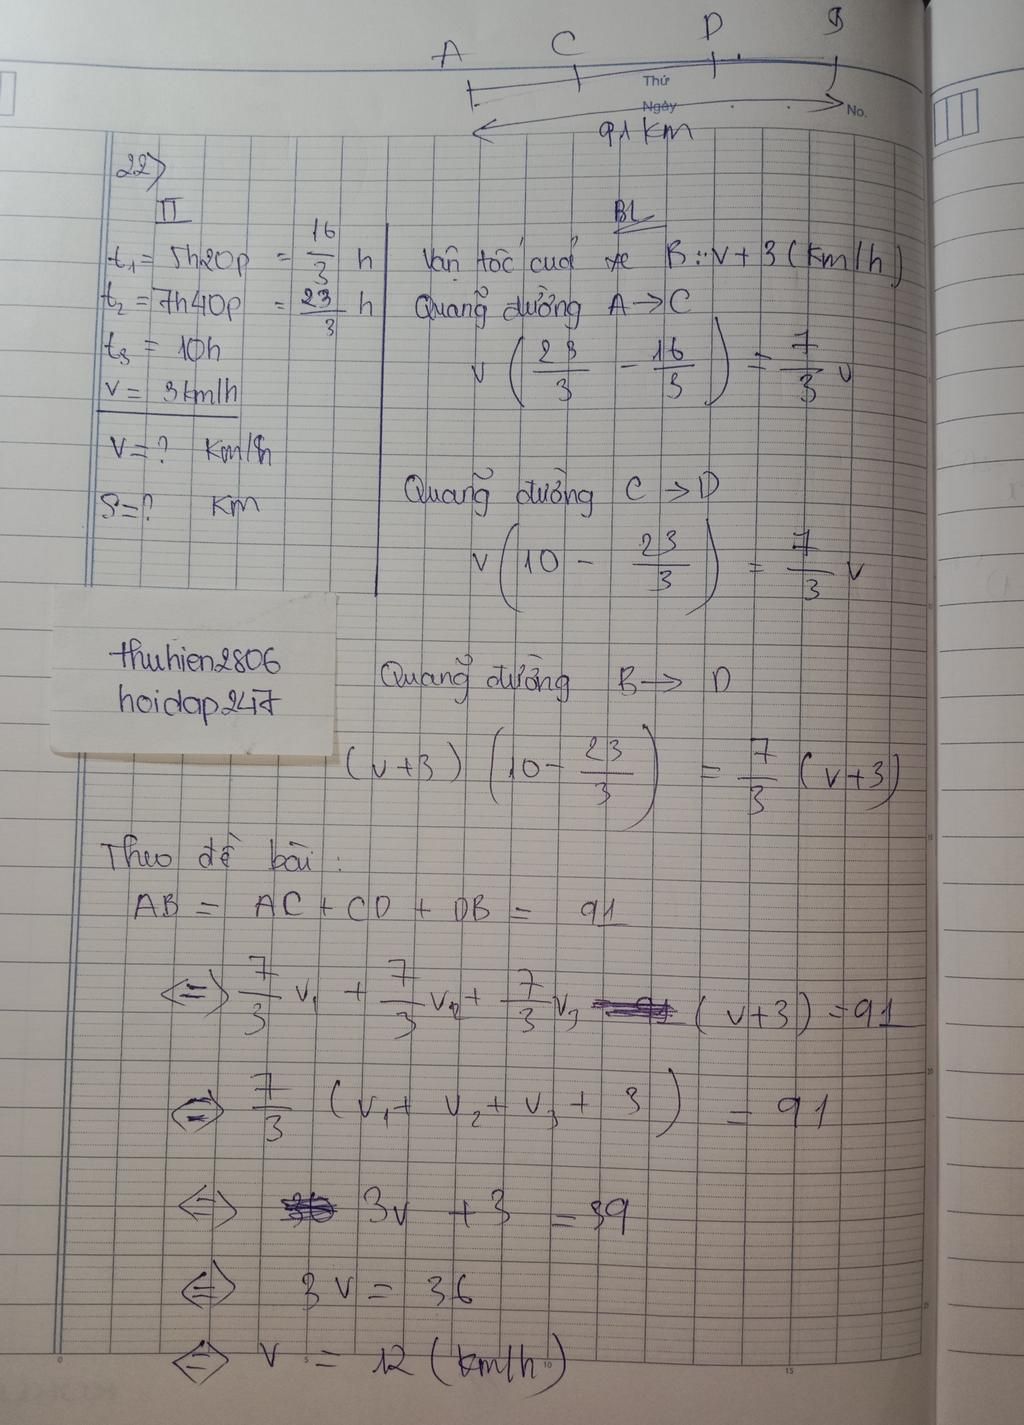 A C D B
Thứ
Ngày No.
91 km
22)
TT
t₁ = 5h20p = 16/3 h
t₂ = 7h40p = 23/3 h
t₃ = 10h
v = 3km/h
v = ? km/h
S = ? km
BL
Vận tốc của xe B: v + 3 (km/h)
Quãng đường A → C
v (23/3 - 16/3) = 7/3 v
Quãng đường C → D
v (10 - 23/3) = 7/3 v
thuhien2806
hoidap247
Quãng đường B → D
(v+3) (10 - 23/3) = 7/3 (v+3)
Theo đề bài:
AB = AC + CD + DB = 91
⇔ 7/3 v₁ + 7/3 v₂ + 7/3 v₃ (v+3) = 91
⇔ 7/3 (v₁ + v₂ + v₃ + 3) = 91
⇔ 3v + 3 = 39
⇔ 3v = 36
⇔ v = 12 (km/h)
0 5 10 15